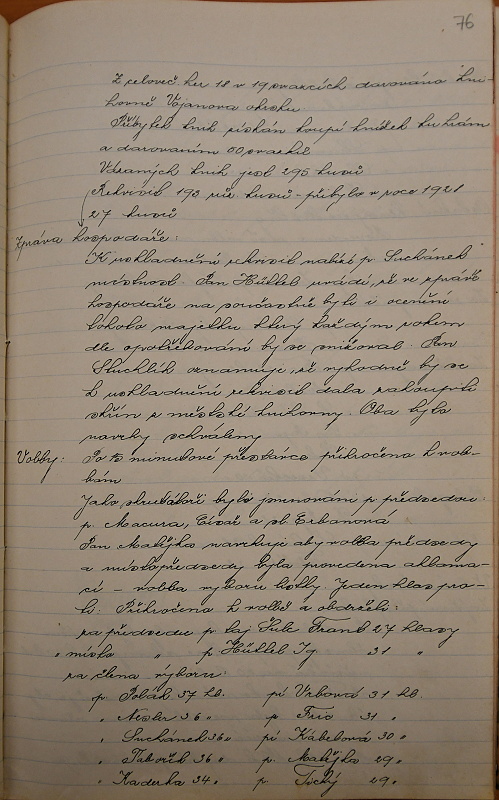 76
Z celoveč. her 18 v 19 svazcích darována kni-
hovně Vojanova okrsku
Přibytek knih získán koupí knížek
a darováním 00 svazků
Vázaných knih jest 295 kusů
Rekvisit 193 růz. kusů - přibylo v roce 1921
27 kusů
Zpráva hospodáře:
K uskladnění rekvisit nabízí p. Suchánek
místnost. Pan Hüttel uvádí, že ve zprávě
hospodáře na součastně bylo i ocenění
tohoto majetku který každým rokem
dle opotřebování by se snižoval. Pan
Stuchlík oznamuje, že výhodně by se
k uskladnění rekvisit dala zakoupiti
skříň z městské knihovny. Oba byla
navrhy schváleny
Volby: Po 5 minutové přestávce přikročeno k vol-
bám
Jako skrutátoři byli jmenováni p předsedou:
p. Macura, Císař a sl. Urbanová
Pan Matějka navrhuje aby volba předsedy
a místopředsedy byla provedena aklama-
cí - volba výboru lístky. Jeden hlas pro-
ti. Přikročeno k volbě a obdrželi:
za předsedu p. Frant 27 hlasy
" místo " p Hüttel Ig. 31 "
za člena výboru:
p. Polák 37 hl. pí Vrbová 31 hl.
" 36 " p. Fric 31 "
" Suchánek 36 " pí Kábelová 30 "
" Tabořík 36 " p. Matějka 29 "
" Kaderka 34 " p. Tichý 29 "